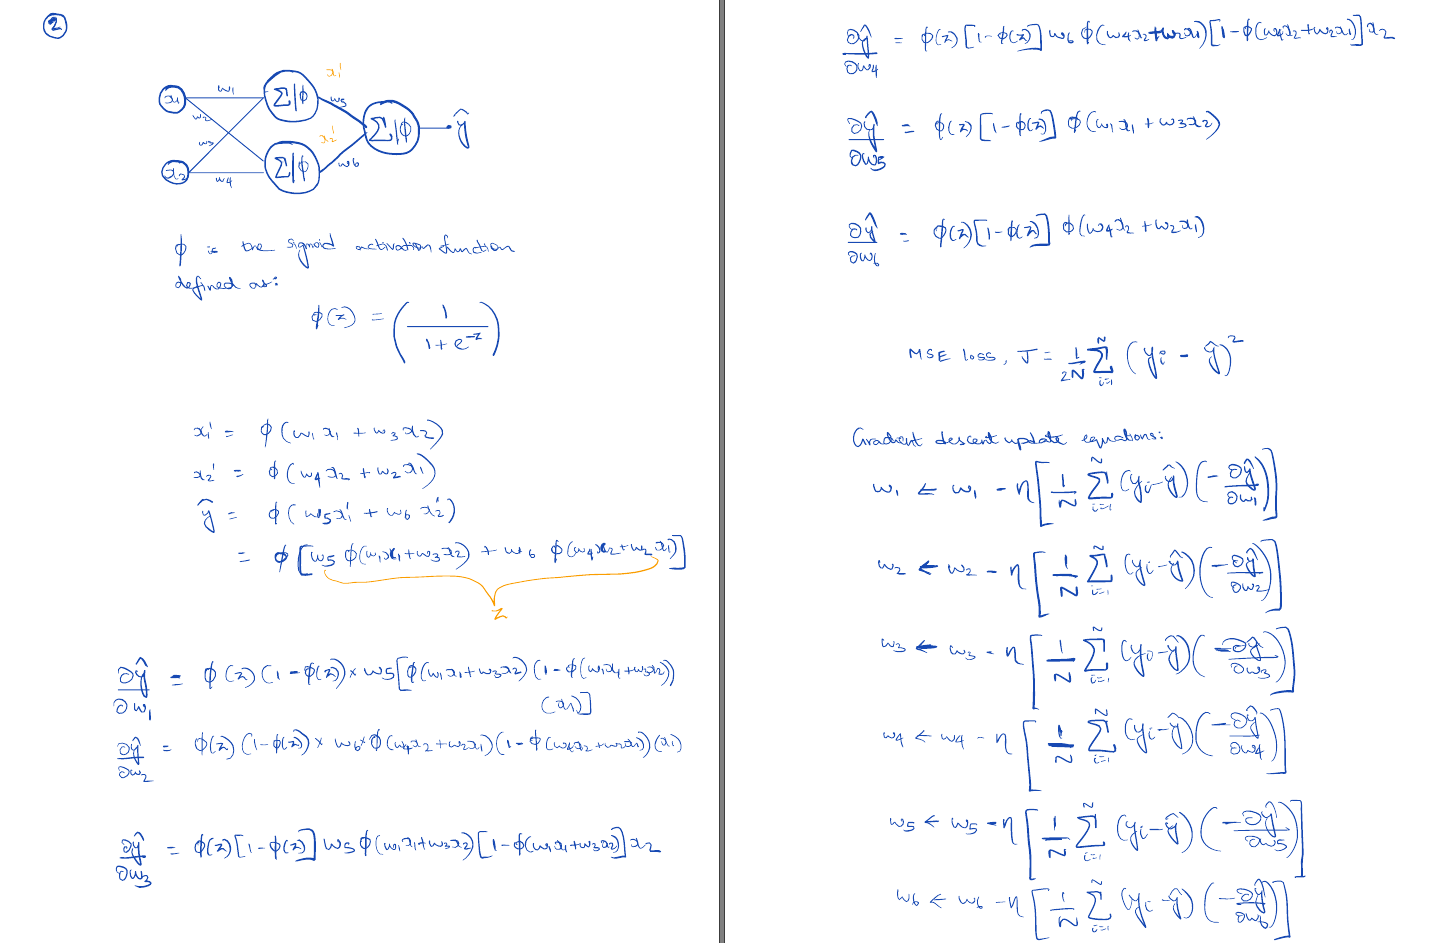 ②
x₁ w₁ Σ|φ x₁' w₅
w₂
w₃ x₂' Σ|φ ŷ
x₂ w₄ Σ|φ w₆
φ is the sigmoid activation function
defined as:
φ(z) = (1 / (1 + e^-z))
x₁' = φ(w₁x₁ + w₃x₂)
x₂' = φ(w₄x₂ + w₂x₁)
ŷ = φ(w₅x₁' + w₆x₂')
= φ[w₅ φ(w₁x₁+w₃x₂) + w₆ φ(w₄x₂+w₂x₁)]
z
∂ŷ/∂w₁ = φ(z)(1-φ(z))×w₅[φ(w₁x₁+w₃x₂)(1-φ(w₁x₁+w₃x₂))
(x₁)]
∂ŷ/∂w₂ = φ(z)(1-φ(z))× w₆×φ(w₄x₂+w₂x₁)(1-φ(w₄x₂+w₂x₁))(x₁)
∂ŷ/∂w₃ = φ(z)[1-φ(z)]w₅φ(w₁x₁+w₃x₂)[1-φ(w₁x₁+w₃x₂)]x₂
∂ŷ/∂w₄ = φ(z)[1-φ(z)]w₆φ(w₄x₂+w₂x₁)[1-φ(w₄x₂+w₂x₁)]x₂
∂ŷ/∂w₅ = φ(z)[1-φ(z)] φ(w₁x₁+w₃x₂)
∂ŷ/∂w₆ = φ(z)[1-φ(z)] φ(w₄x₂+w₂x₁)
MSE loss, J = 1/2N Σ_{i=1}^{N} (yᵢ - ŷ)²
Gradient descent update equations:
w₁ ← w₁ - η[1/N Σ_{i=1}^{N} (yᵢ-ŷ)(-∂ŷ/∂w₁)]
w₂ ← w₂ - η[1/N Σ_{i=1}^{N} (yᵢ-ŷ)(-∂ŷ/∂w₂)]
w₃ ← w₃ - η[1/N Σ_{i=1}^{N} (yᵢ-ŷ)(-∂ŷ/∂w₃)]
w₄ ← w₄ - η[1/N Σ_{i=1}^{N} (yᵢ-ŷ)(-∂ŷ/∂w₄)]
w₅ ← w₅ - η[1/N Σ_{i=1}^{N} (yᵢ-ŷ)(-∂ŷ/∂w₅)]
w₆ ← w₆ - η[1/N Σ_{i=1}^{N} (yᵢ-ŷ)(-∂ŷ/∂w₆)]